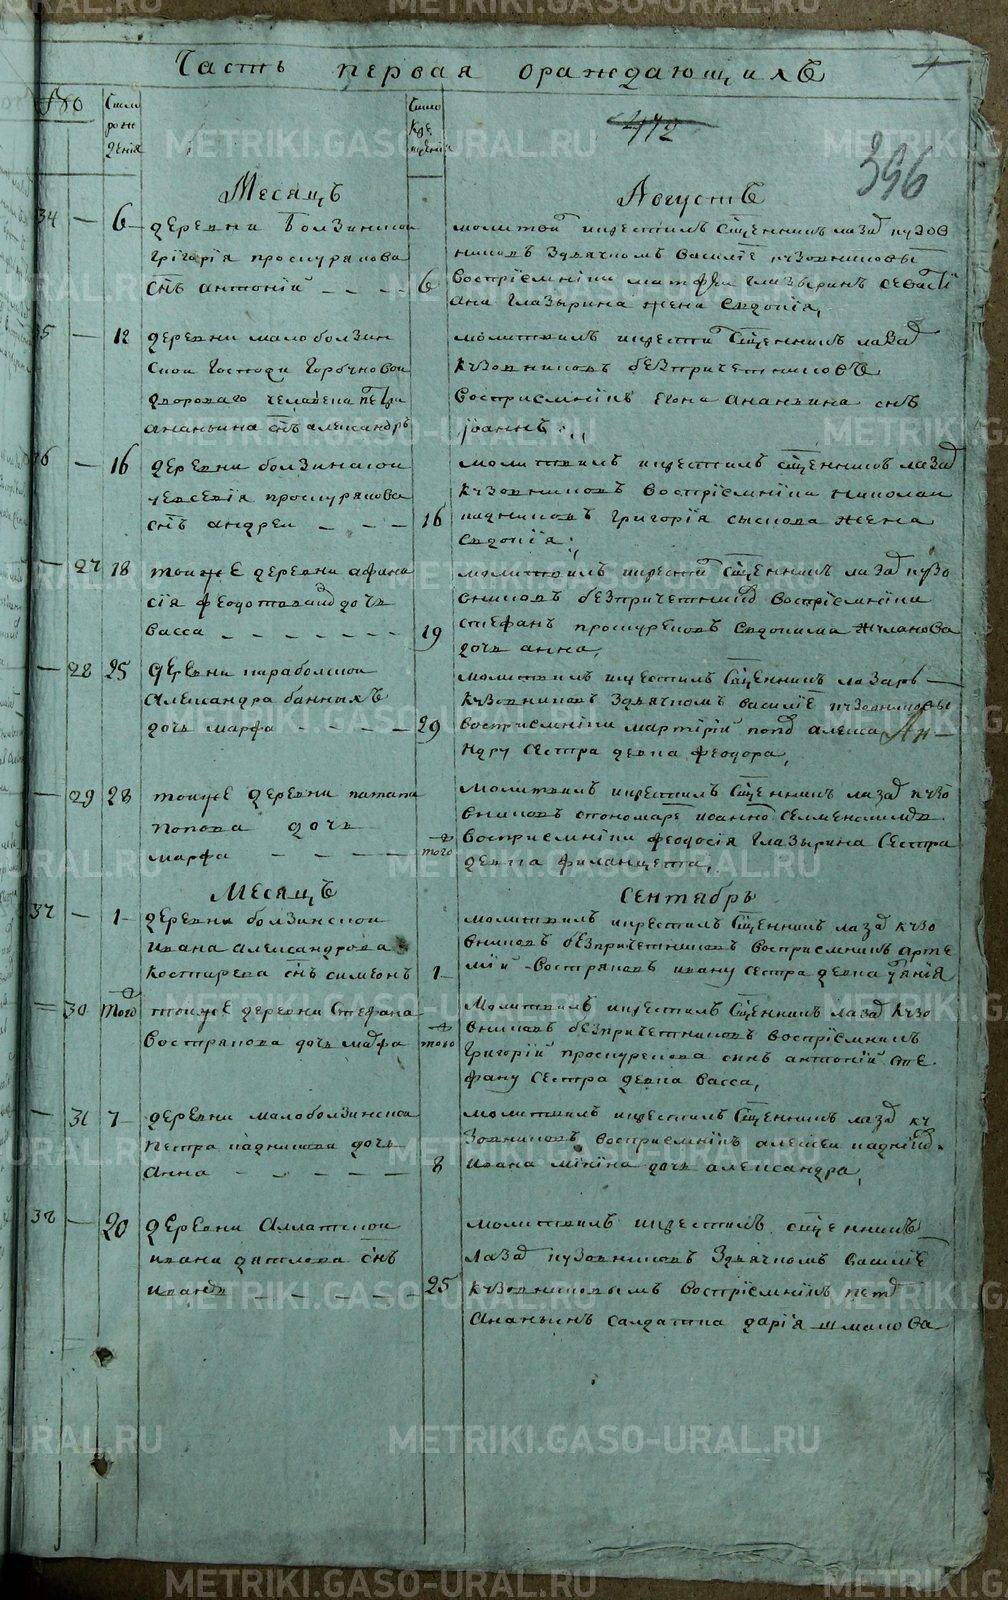 Часть первая ораждающихсѣ
4
№
Число рождения
Число крещения
472
396
Месяцъ Августъ
34 — 6 деревни Болзинской
григория проскурякова
снъ антоній 6
молитвой и крестилъ Сщенникъ лазар кузов
никовъ Здьячкомъ василіе кузовниковы
восприемники матфеи глазыринъ севасти
ана глазырина жена Евдокія,
35 — 12 деревни малоболзин
скои Господи Горбуновои
двороваго человека петра
ананьина снъ александръ
молитвилъ икрестил Сщенникъ лазар
кузовниковъ безпричетниковъ
восприемникъ егона ананьина снъ
іоаннъ
36 — 16 деревни болзинскои
евсевія проскурякова
снъ андреи 16
молитвилъ икрестилъ сщенникъ лазар
кузовниковъ восприемники николаи
падниковъ григорія сыскова жена
Евдокія
27 18 тоиже деревни афана
сія федотова дочь
васса 19
молитвилъ икрестил Сщенникъ лазар кузо
вниковъ безпричетник восприемники
стефанъ проскуреновъ Евдокима жуланова
дочь анна,
28 25 деревни параболскои
Александра банныхъ
дочь марфа 29
молитвилъ икрестилъ Сщенникъ лазарь
кузовниковъ Здьячкомъ василіе кузовниковы
восприемники мартирій попов алекса Ан
ндру сестра девка феодора,
29 28 тоиже деревни патапа
попова дочь
марфа того
молитвилъ икрестилъ Сщенникъ лазар кузо
вниковъ спономаре иоанно селменскимъ
восприемники феодосія глазырина сестра
девка филанцета,
Месяцъ Сентябрь
37 — 1 деревни болзинскои
ивана александрова
костырева снъ симеонъ 1
молитвилъ икрестилъ Сщенникъ лазар кузо
вниковъ безпричетниковъ восприемникъ арте
мии востряковъ ивану сестра девка
30 того тоиже деревни Стефана
вострякова дочь мафа того
Молитвилъ икрестилъ Сщенникъ лазар кузо
вниковъ безпричетниковъ восприемникъ
григорій проскуренова сынъ антоній сте
фану сестра девка васса,
31 7 деревни малоболзинскои
петра падникова дочь
Анна 8
молитвилъ икрестилъ Сщенникъ лазар ку
зовниковъ восприемникъ алексеи падников
ивана мікина дочь александра,
38 — 20 деревни Аллатскои
ивана дятлова снъ
иванъ 25
молитвилъ икрестилъ сщенникъ
лазар кузовниковъ Здьячкомъ василіе
кузовниковымъ восприемникъ петр
ананьинъ салдатка дарія шмакова
METRIKI.GASO-URAL.RU